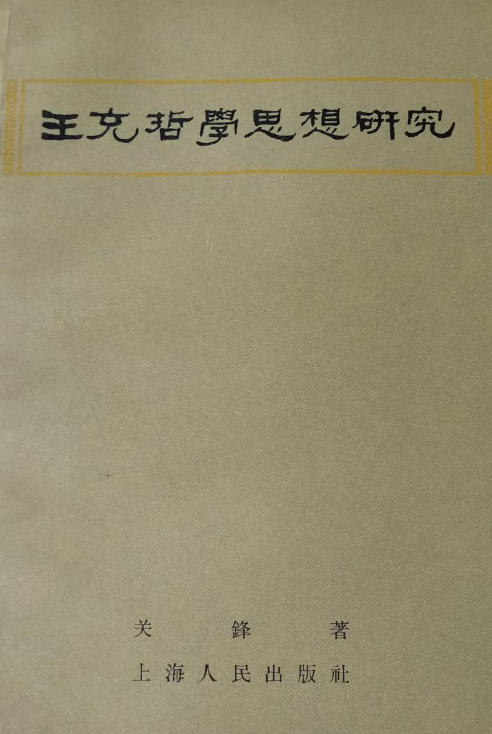 王充哲學思想研究
关鋒著
上海人民出版社